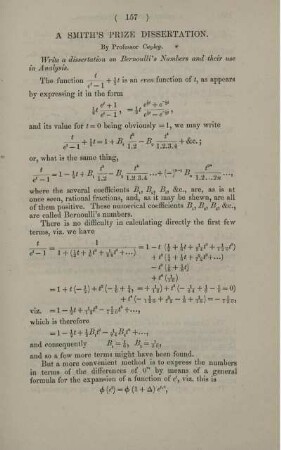 ( 157 )
A SMITH'S PRIZE DISSERTATION.
By Professor Cayley.
Write a dissertation on Bernoulli's Numbers and their use
in Analysis.
The function t/(e^t − 1) + ½t is an even function of t, as appears
by expressing it in the form
½t (e^t + 1)/(e^t − 1), = ½t (e^{½t} + e^{−½t})/(e^{½t} − e^{−½t}),
and its value for t = 0 being obviously = 1, we may write
t/(e^t − 1) + ½t = 1 + B₁ t²/1.2 − B₂ t⁴/1.2.3.4 + &c.;
or, what is the same thing,
t/(e^t − 1) = 1 − ½t + B₁ t²/1.2 − B₂ t⁴/1.2.3.4 ... + (−)^{n−1} Bₙ t^{2n}/1.2...2n ...,
where the several coefficients B₁, B₂, B₃, &c., are, as is at
once seen, rational fractions, and, as it may be shewn, are all
of them positive. These numerical coefficients B₁, B₂, B₃, &c.,
are called Bernoulli's numbers.
There is no difficulty in calculating directly the first few
terms, viz. we have
which is therefore
and consequently
and so a few more terms might have been found.
But a more convenient method is to express the numbers
in terms of the differences of 0^m by means of a general
formula for the expansion of a function of e^t, viz. this is
φ (e^t) = φ (1 + Δ) e^{t.0},